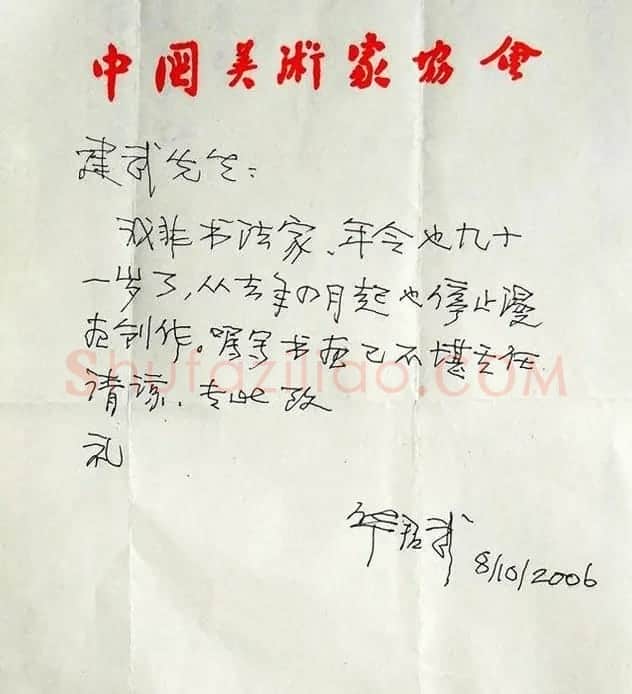 中國美術家協會
建武先生：
我非书法家、年令也九十
一岁了,从去年の月起也停止漫
画创作。嘱写书画已不堪
请谅、专此 致
礼
华君武 8/10/2006
Shufaziliao.COM